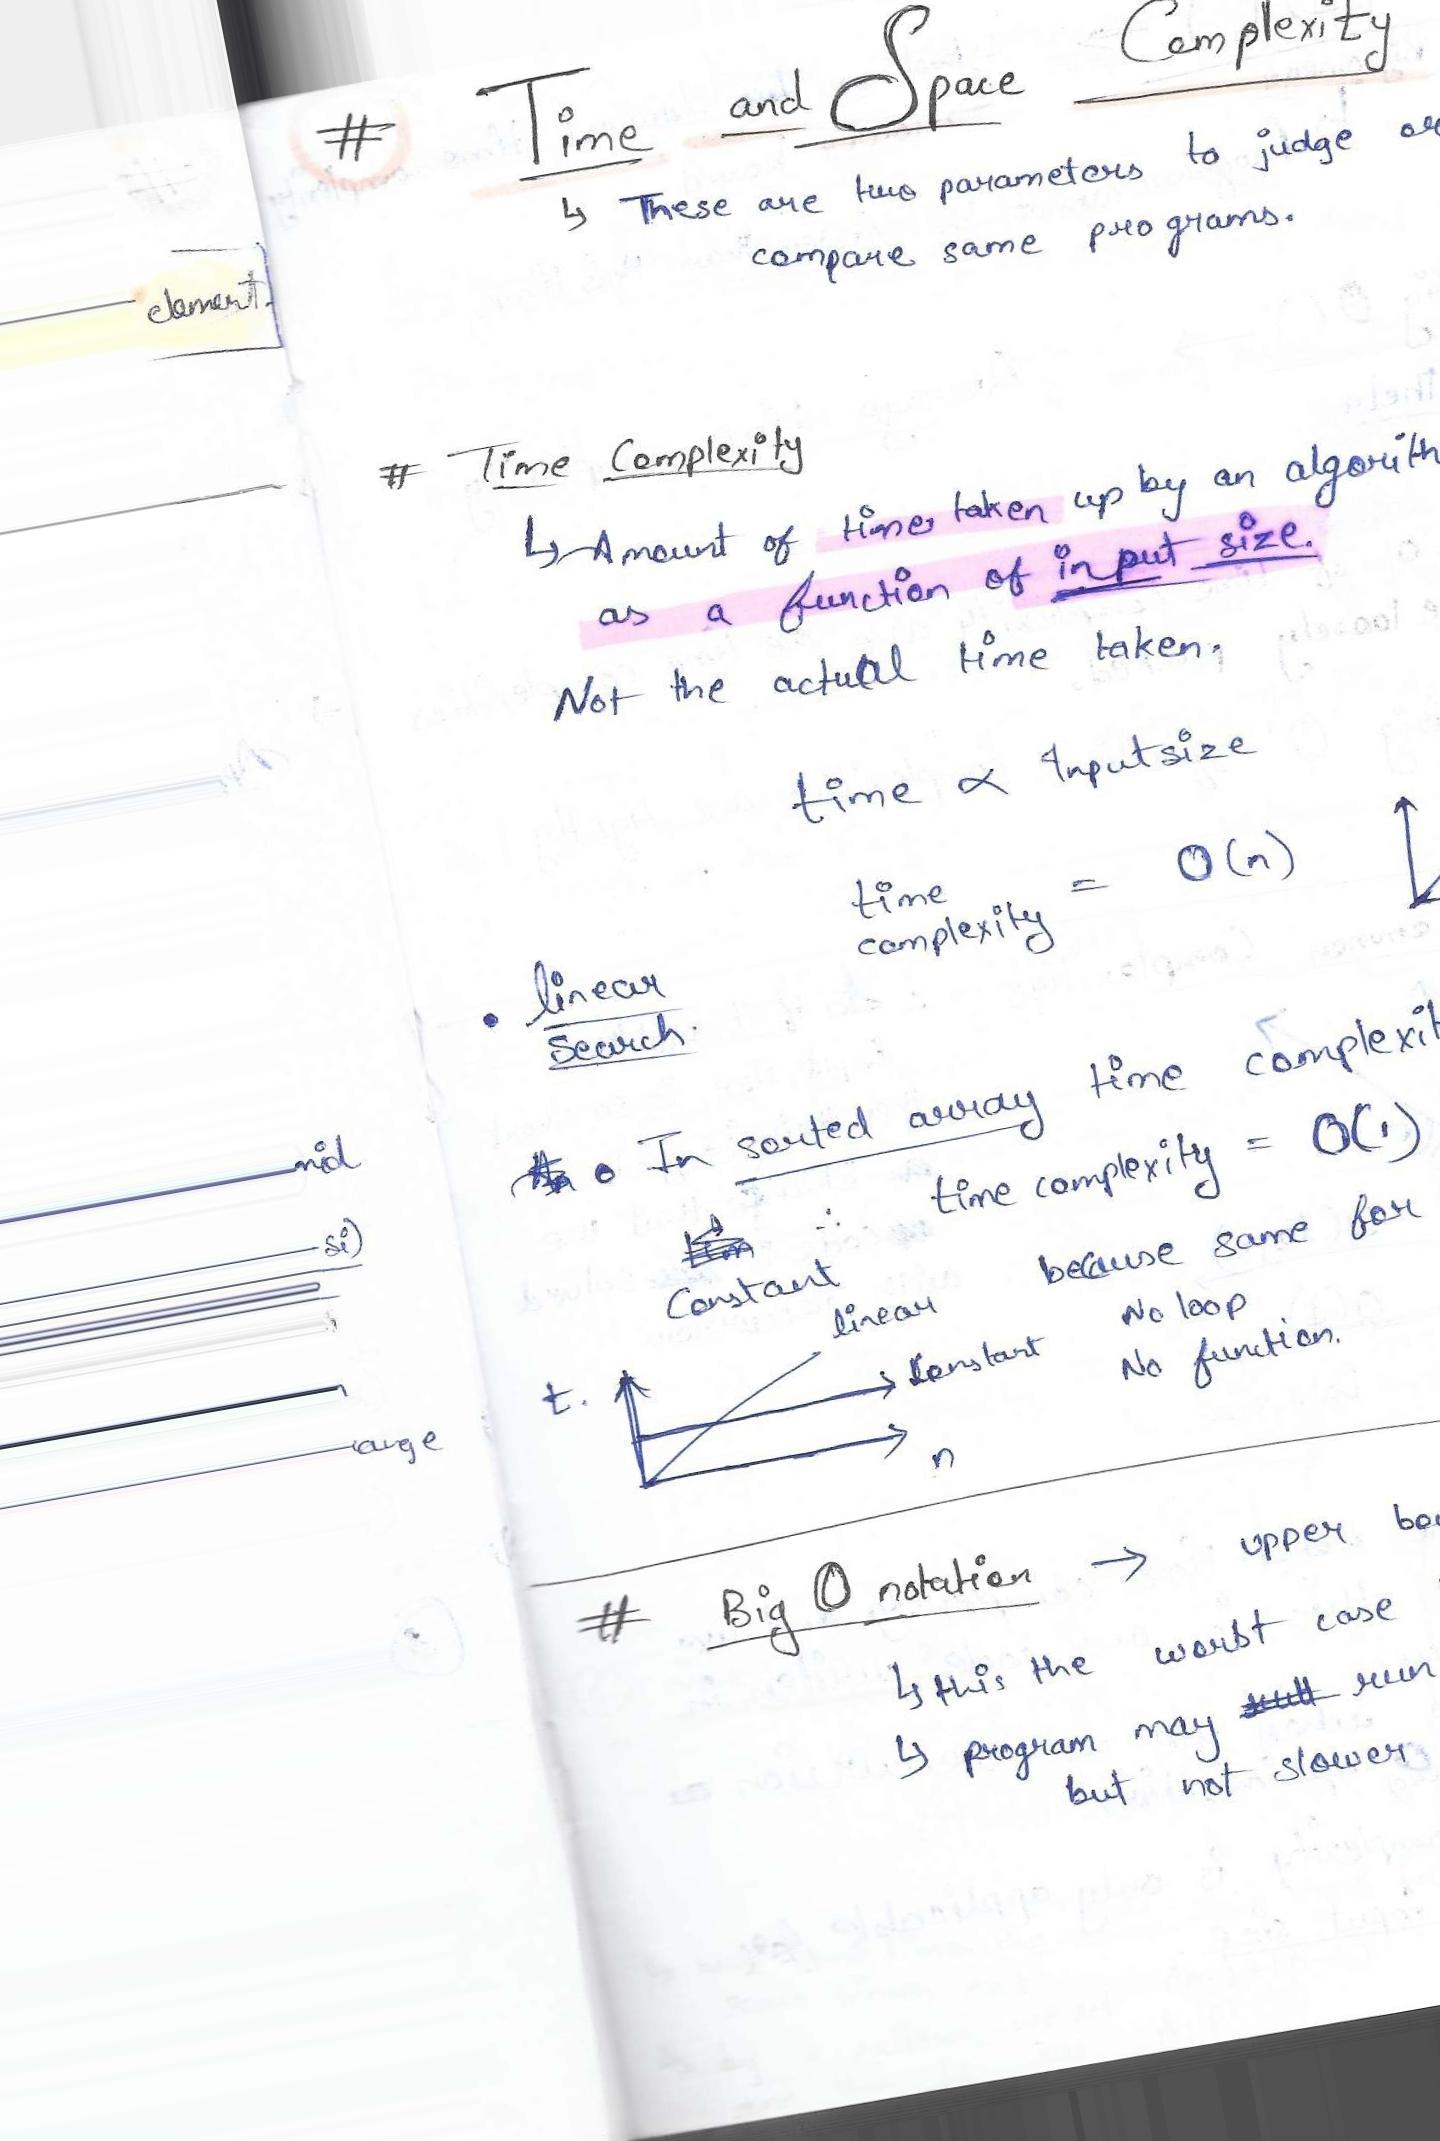 # Time and Space Complexity
↳ These are two parameters to judge or
compare same programs.
element.
# Time Complexity
↳ Amount of time taken up by an algorith
as a function of input size.
Not the actual time taken.
time ∝ Inputsize
time complexity = O(n)
• linear
search.
• In sorted array time complexit
∴ time complexity = O(1)
Constant
because same for
No loop
No function.
linear
Constant
t.
n
mid
si)
ange
# Big O notation → upper bo
↳ this the worst case
↳ program may run
but not slower